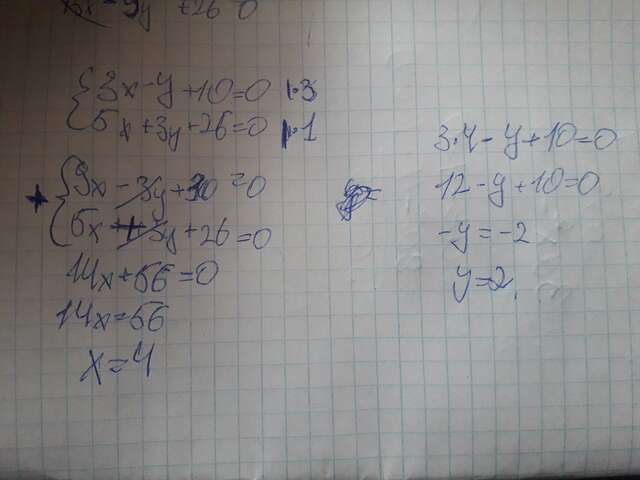 - 9y +26 0
{3x-y+10=0 |·3
{5x+3y+26=0 |·1
+ {9x-3y+30=0
{5x+3y+26=0
14x+56=0
14x=56
x=4
3·4-y+10=0
12-y+10=0
-y=-2
y=2